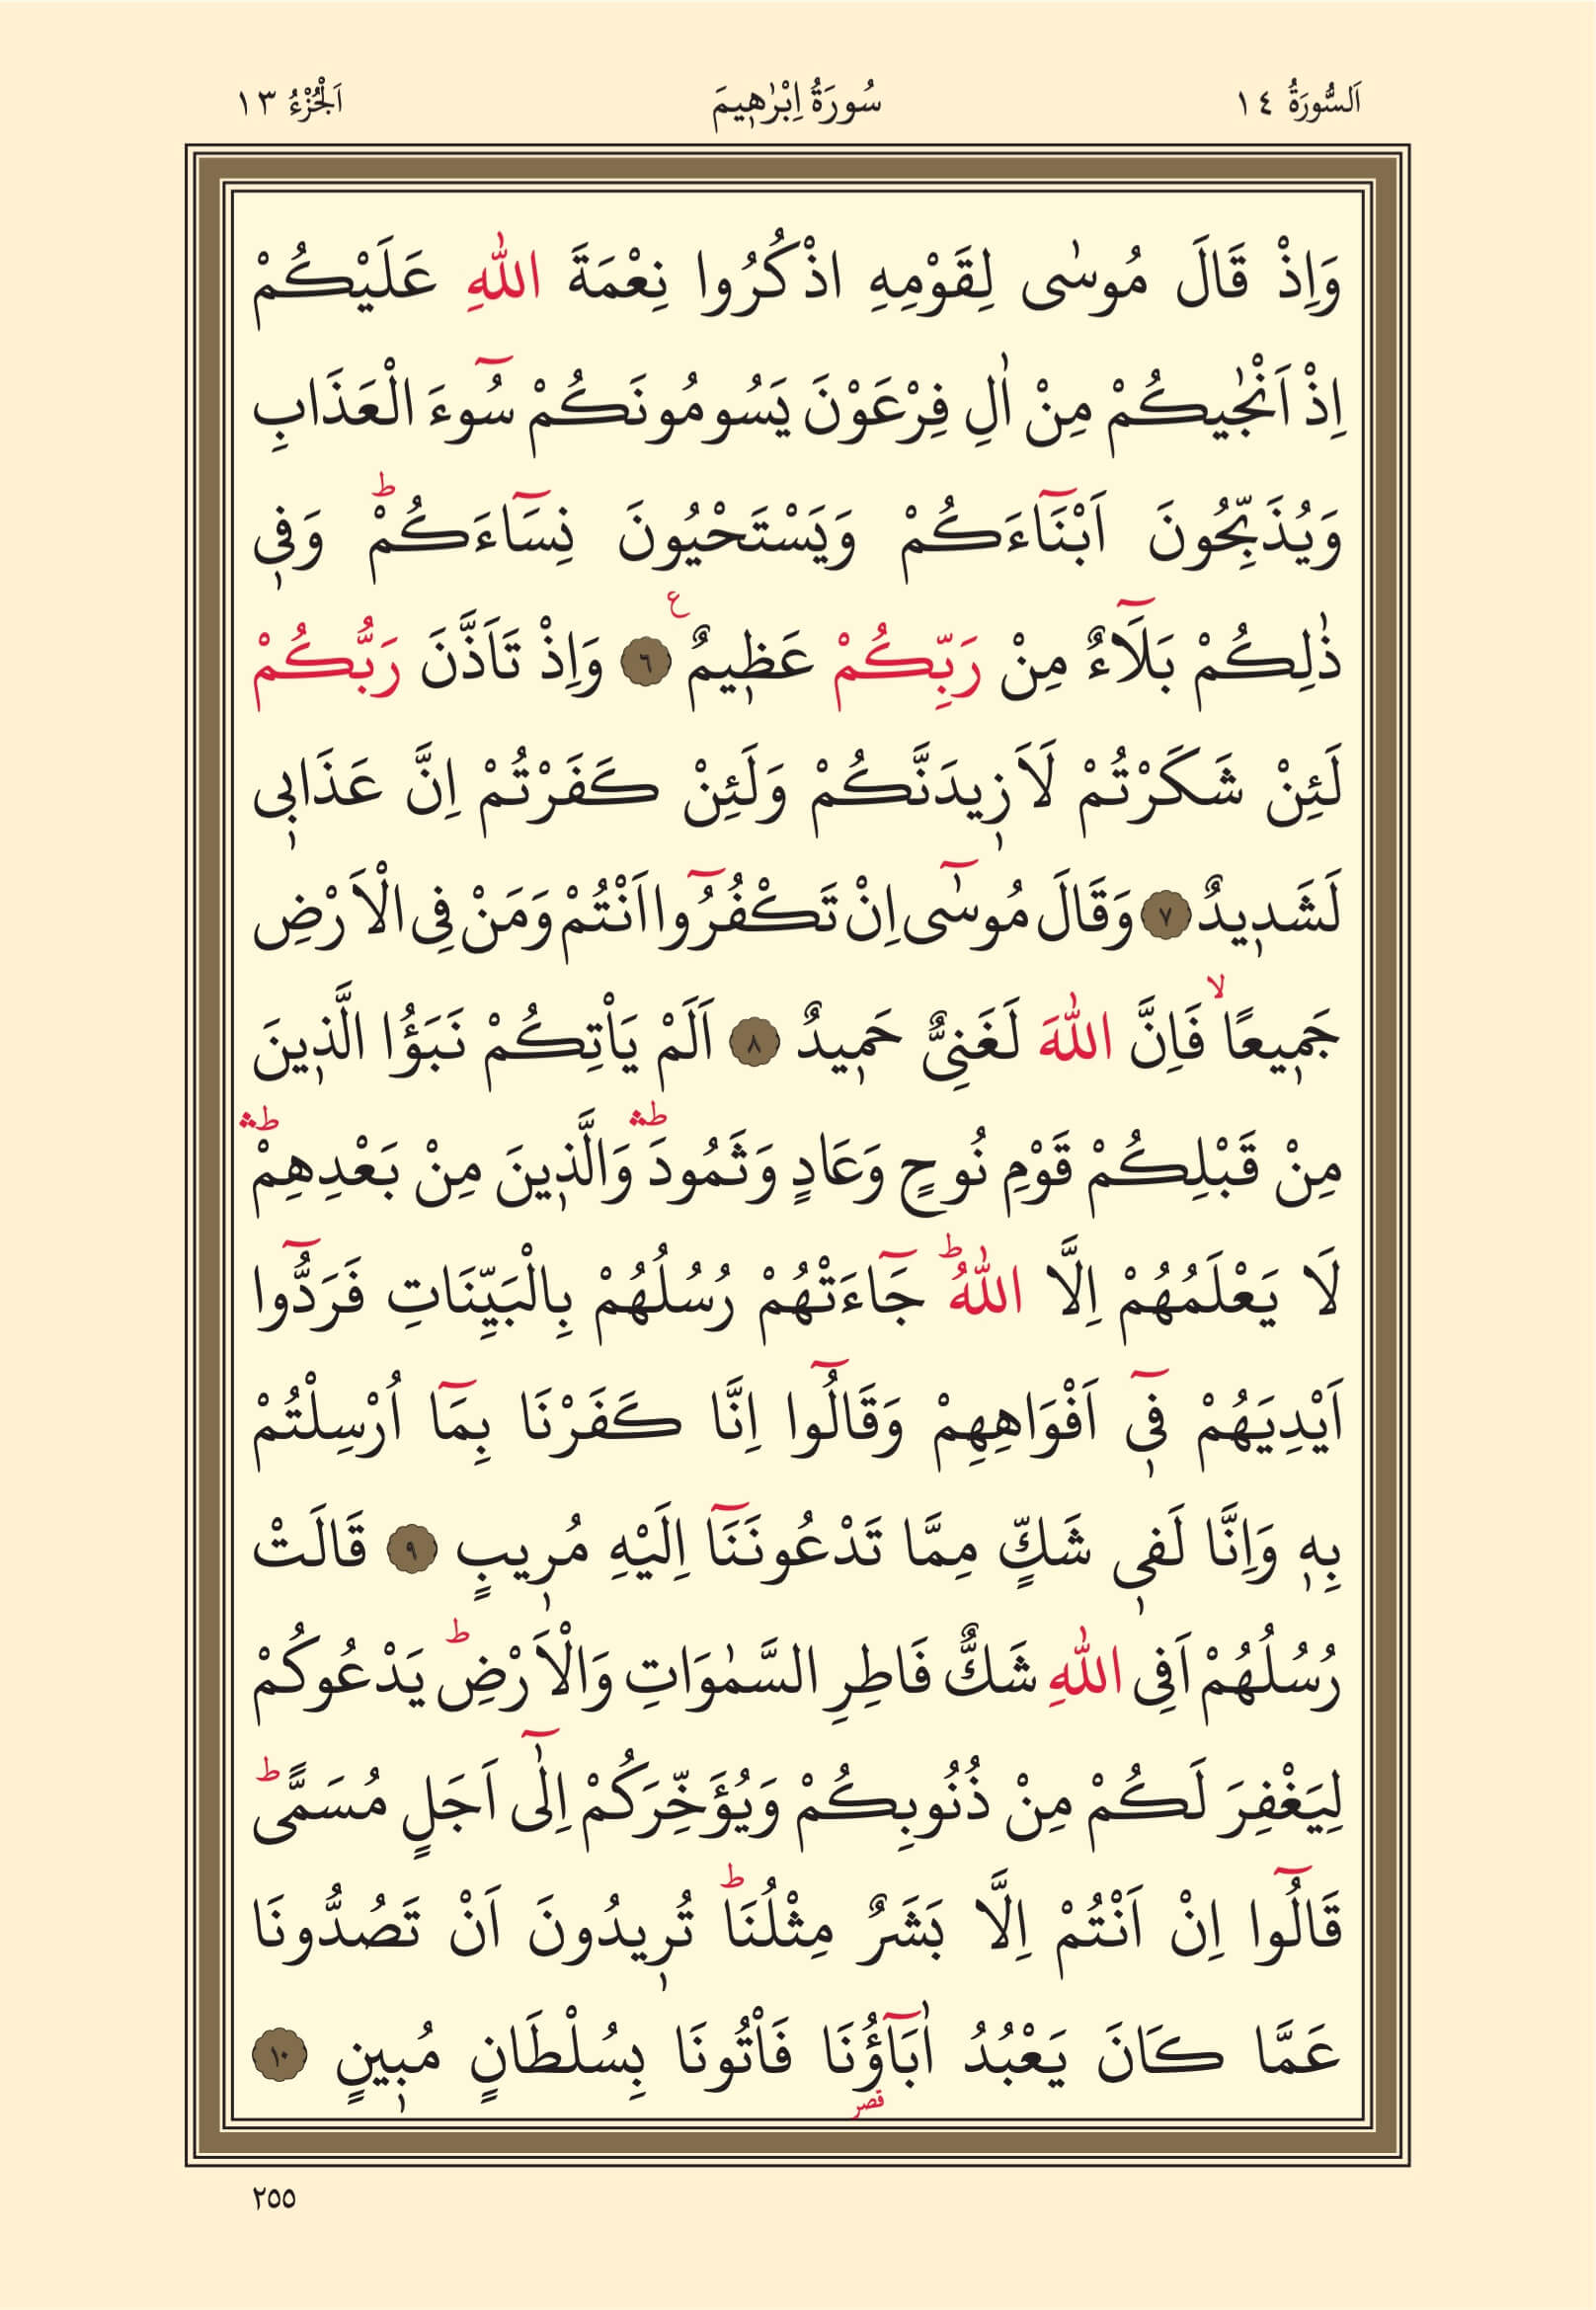 اَلسُّورَةُ ١٤ سُورَةُ اِبْرٰهٖيمَ اَلْجُزْءُ ١٣
وَاِذْ قَالَ مُوسٰى لِقَوْمِهِ اذْكُرُوا نِعْمَةَ اللّٰهِ عَلَيْكُمْ
اِذْ اَنْجٰيكُمْ مِنْ اٰلِ فِرْعَوْنَ يَسُومُونَكُمْ سُٓوءَ الْعَذَابِ
وَيُذَبِّحُونَ اَبْنَٓاءَكُمْ وَيَسْتَحْيُونَ نِسَٓاءَكُمْؕ وَفٖي
ذٰلِكُمْ بَلَٓاءٌ مِنْ رَبِّكُمْ عَظٖيمٌࣖ ٦ وَاِذْ تَاَذَّنَ رَبُّكُمْ
لَئِنْ شَكَرْتُمْ لَاَزٖيدَنَّكُمْ وَلَئِنْ كَفَرْتُمْ اِنَّ عَذَابٖي
لَشَدٖيدٌ ٧ وَقَالَ مُوسٰٓى اِنْ تَكْفُرُٓوا اَنْتُمْ وَمَنْ فِي الْاَرْضِ
جَمٖيعًاۙ فَاِنَّ اللّٰهَ لَغَنِيٌّ حَمٖيدٌ ٨ اَلَمْ يَأْتِكُمْ نَبَؤُا الَّذٖينَ
مِنْ قَبْلِكُمْ قَوْمِ نُوحٍ وَعَادٍ وَثَمُودَؕۛ وَالَّذٖينَ مِنْ بَعْدِهِمْؕۛ
لَا يَعْلَمُهُمْ اِلَّا اللّٰهُؕ جَٓاءَتْهُمْ رُسُلُهُمْ بِالْبَيِّنَاتِ فَرَدُّٓوا
اَيْدِيَهُمْ فٖٓي اَفْوَاهِهِمْ وَقَالُٓوا اِنَّا كَفَرْنَا بِمَٓا اُرْسِلْتُمْ
بِهٖ وَاِنَّا لَفٖي شَكٍّ مِمَّا تَدْعُونَنَٓا اِلَيْهِ مُرٖيبٍ ٩ قَالَتْ
رُسُلُهُمْ اَفِي اللّٰهِ شَكٌّ فَاطِرِ السَّمٰوَاتِ وَالْاَرْضِؕ يَدْعُوكُمْ
لِيَغْفِرَ لَكُمْ مِنْ ذُنُوبِكُمْ وَيُؤَخِّرَكُمْ اِلٰٓى اَجَلٍ مُسَمًّىؕ
قَالُٓوا اِنْ اَنْتُمْ اِلَّا بَشَرٌ مِثْلُنَاؕ تُرٖيدُونَ اَنْ تَصُدُّونَا
عَمَّا كَانَ يَعْبُدُ اٰبَٓاؤُ۬نَا فَأْتُونَا بِسُلْطَانٍ مُبٖينٍ ١٠
قصر
٢٥٥